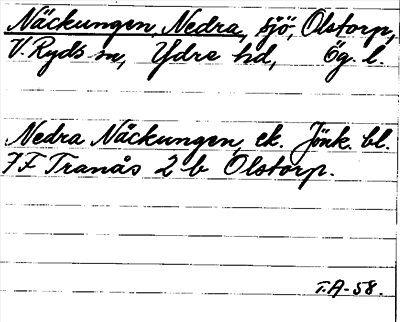 Näckungen, Nedra, sjö, Olstorp,
V. Ryds sn, Ydre hd, Ög. l.
Nedra Näckungen, ek. Jönk. bl.
7F Tranås 2 b Olstorp.
T.A-58.